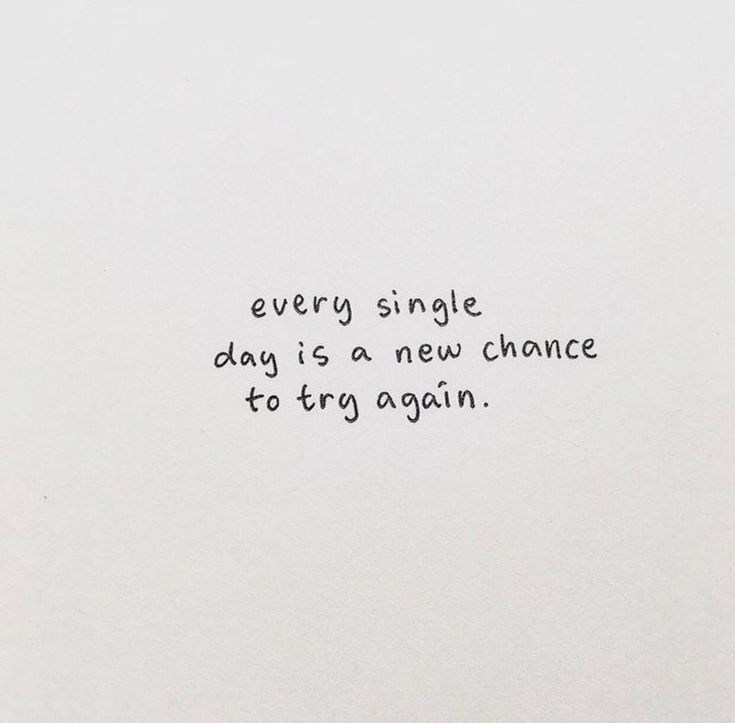 every single
day is a new chance
to try again.